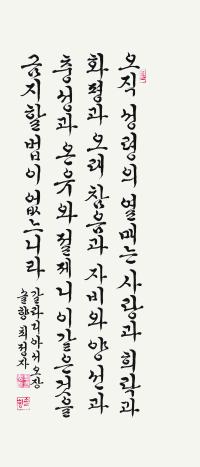 오직 성령의 열매는 사랑과 희락과
화평과 오래 참음과 자비와 양선과
충성과 온유와 절제니 이같은 것을
금지할 법이 없느니라
갈라디아서 오장
솔향 최정자